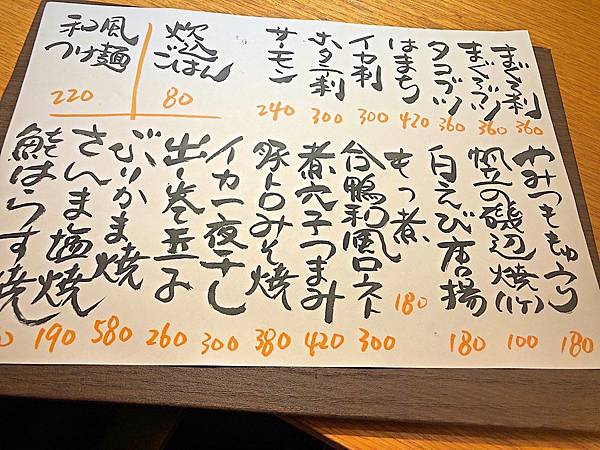 まぐろ刺 360
まぐろブツ 360
タコブツ 360
はまち 420
イカ刺 300
ホタテ刺 300
サーモン 240
炊込ごはん 80
和風つけ麺 220
やみつきもやし 180
帆立の磯辺焼(1ケ) 100
白えび唐揚 180
もつ煮 180
合鴨和風ロースト 300
煮穴子つまみ 420
豚トロみそ焼 380
イカ一夜干し 300
出し巻玉子 260
ぶりかま焼 580
さんま塩焼 190
鮭はらす焼